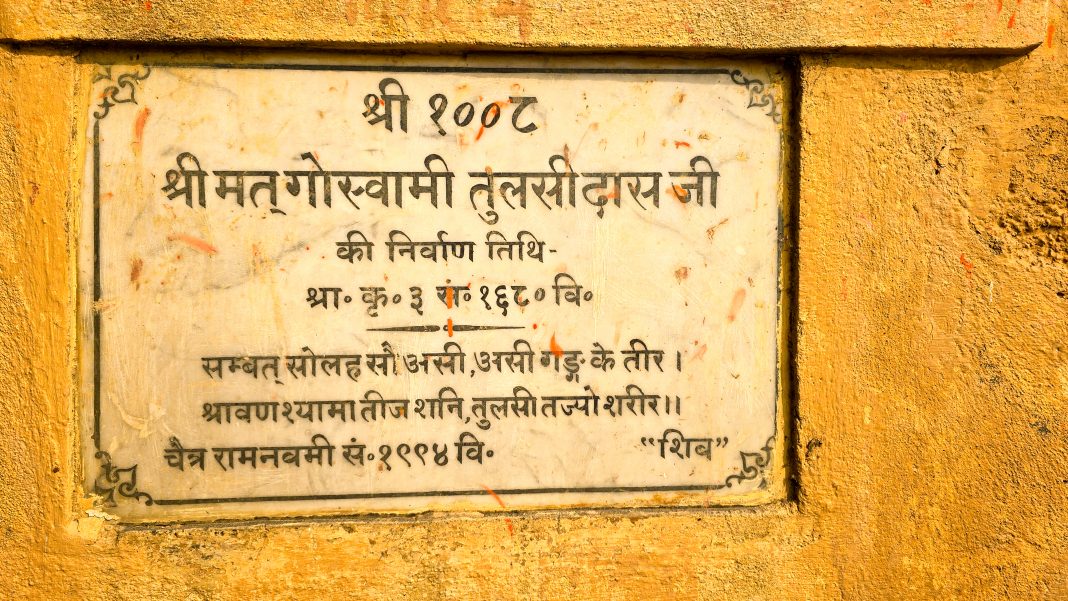 श्री १००८
श्रीमत्गोस्वामी तुलसीदास जी
की निर्वाण तिथि-
श्रा॰ कृ॰ ३ सं॰ १६८० वि॰
सम्बत् सोलह सौ असी, असी गङ्ग के तीर।
श्रावण श्यामा तीज शनि, तुलसी तज्यो शरीर।।
चैत्र रामनवमी सं॰ १९९४ वि॰ “शिव”